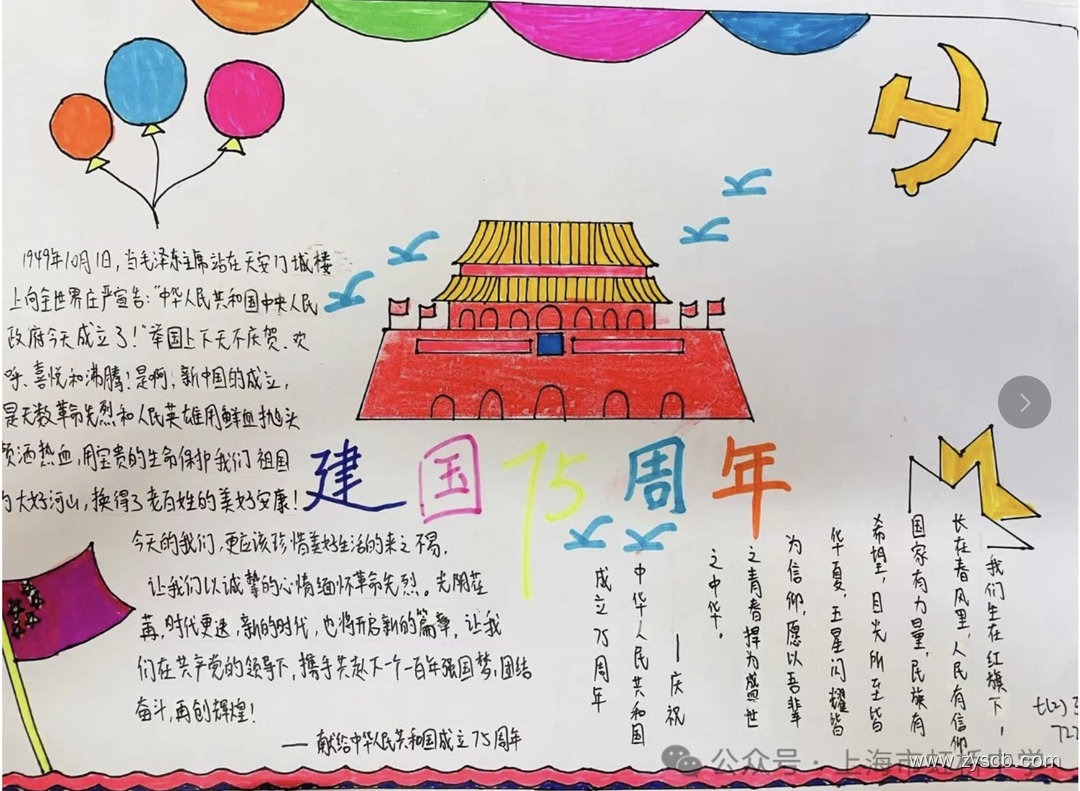 1949年10月1日,当毛泽东主席站在天安门城楼
上向全世界庄严宣告:"中华人民共和国中央人民
政府今天成立了!"举国上下无不庆贺、欢
呼、喜悦和沸腾!是啊,新中国的成立,
是无数革命先烈和人民英雄用鲜血抛头
颅洒热血,用宝贵的生命保护我们祖国
大好河山,换得了老百姓的美好安康!
建国75周年
今天的我们,更应该珍惜美好生活的来之不易,
让我们以诚挚的心情缅怀革命先烈。光阴荏
苒,时代更迭,新的时代,也将开启新的篇章,让我
们在共产党的领导下,携手共赴下一个百年强国梦,团结
奋斗,再创辉煌!
——献给中华人民共和国成立75周年
我们生在红旗下,
长在春风里,人民有信仰
国家有力量,民族有
希望,目光所至皆
华夏,五星闪耀皆
为信仰,愿以吾辈
之青春捍为盛世
之中华。
——庆祝
中华人民共和国
成立75周年
七(2)
公众号·上海市虹桥中学
www.zyscb.com